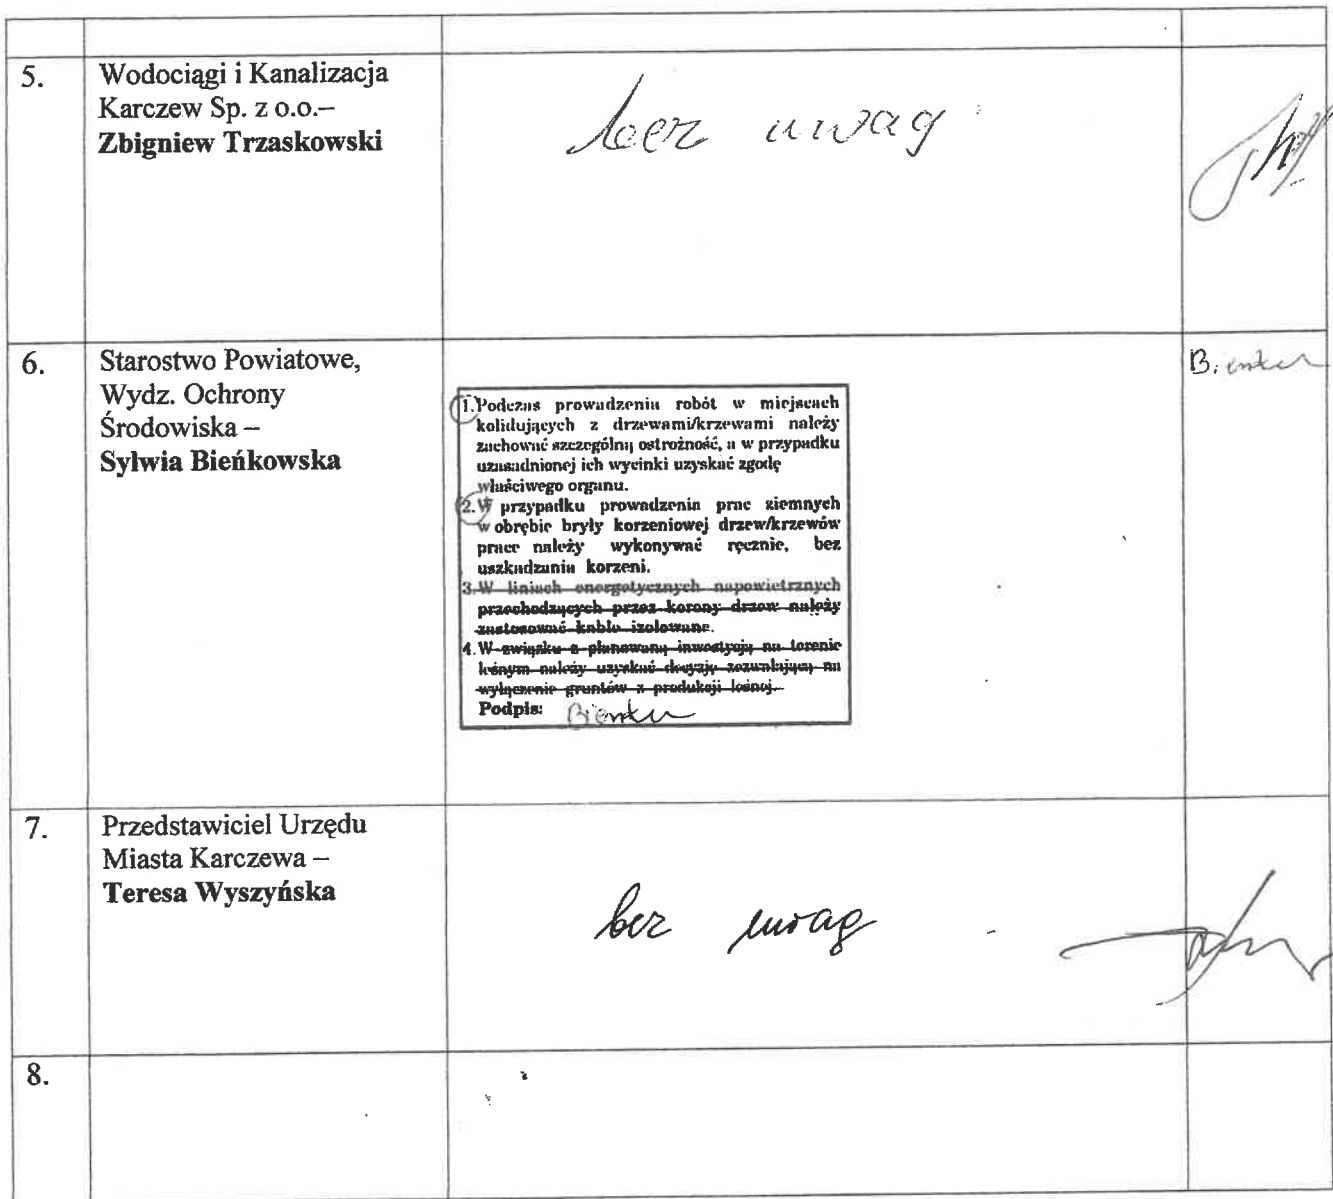 5.
Wodociągi i Kanalizacja
Karczew Sp. z o.o.–
Zbigniew Trzaskowski
bez uwag
6.
Starostwo Powiatowe,
Wydz. Ochrony
Środowiska –
Sylwia Bieńkowska
1. Podczas prowadzenia robót w miejscach
kolidujących z drzewami/krzewami należy
zachować szczególną ostrożność, a w przypadku
uzasadnionej ich wycinki uzyskać zgodę
właściwego organu.
2. W przypadku prowadzenia prac ziemnych
w obrębie bryły korzeniowej drzew/krzewów
prace należy wykonywać ręcznie, bez
uszkadzania korzeni.
3. W liniach energetycznych napowietrznych
przechodzących przez korony drzew należy
zastosować kable izolowane.
4. W związku z planowaną inwestycją na terenie
leśnym należy uzyskać decyzję zezwalającą na
wyłączenie gruntów z produkcji leśnej.
Podpis:
7.
Przedstawiciel Urzędu
Miasta Karczewa –
Teresa Wyszyńska
bez uwag
8.